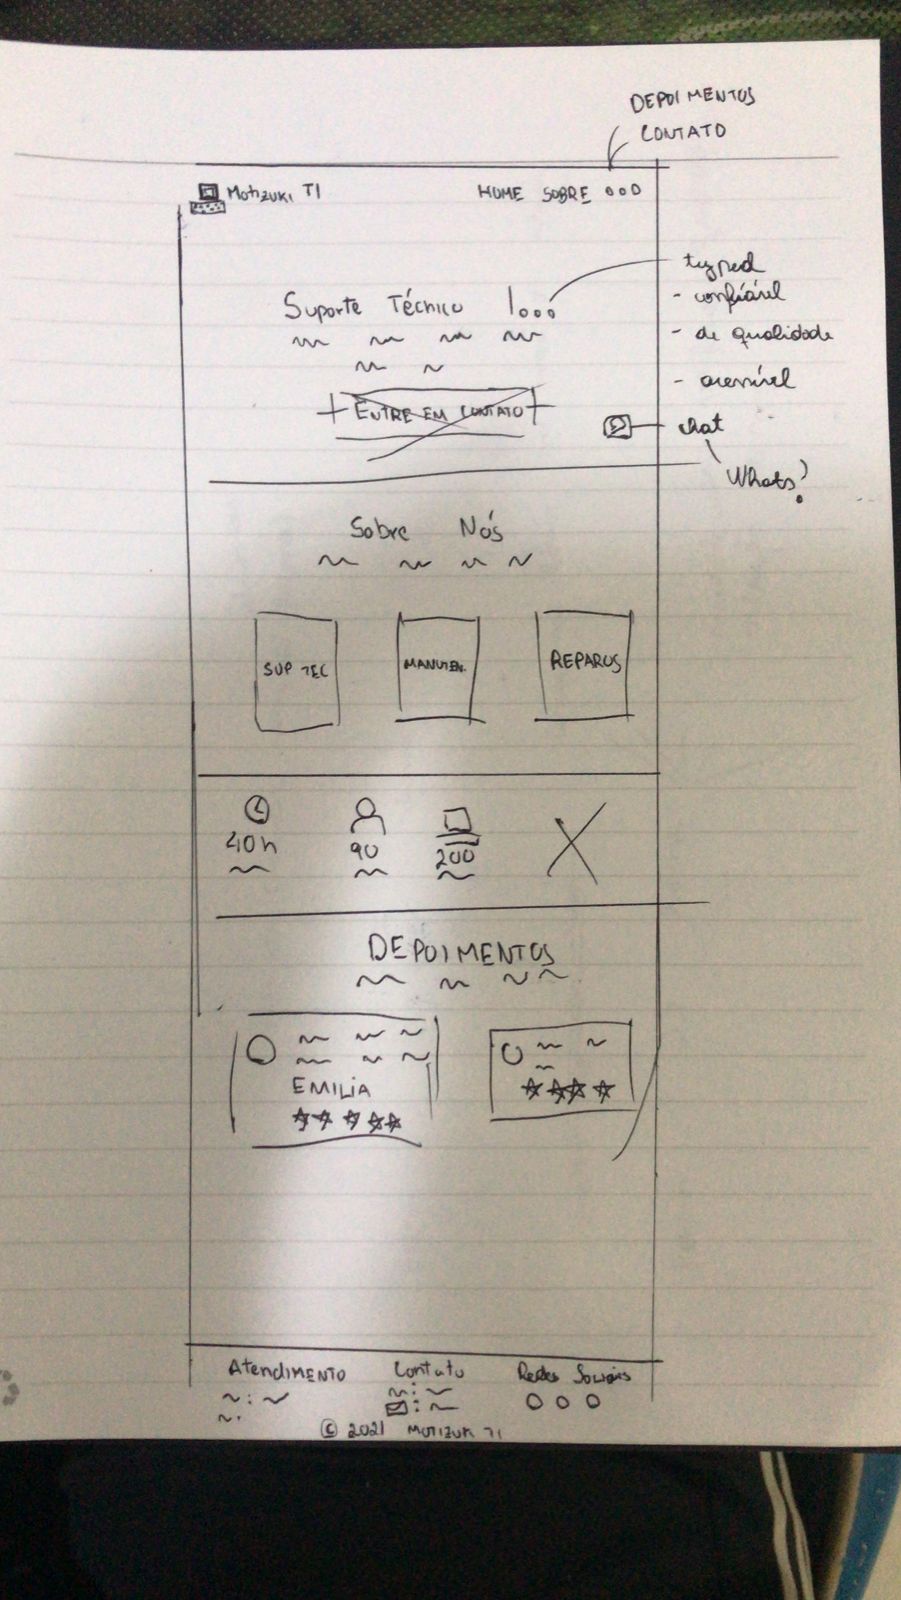 DEPOIMENTOS
CONTATO
Motizuki TI
HOME SOBRE
typed
- confiável
Suporte Técnico
- de qualidade
- acessível
ENTRE EM CONTATO
chat
Whats?
Sobre Nós
SUP TEC
MANUTEN.
REPAROS
40h
90
200
DEPOIMENTOS
EMILIA
Atendimento
Contato
Redes Sociais
© 2021 MOTIZUKI TI